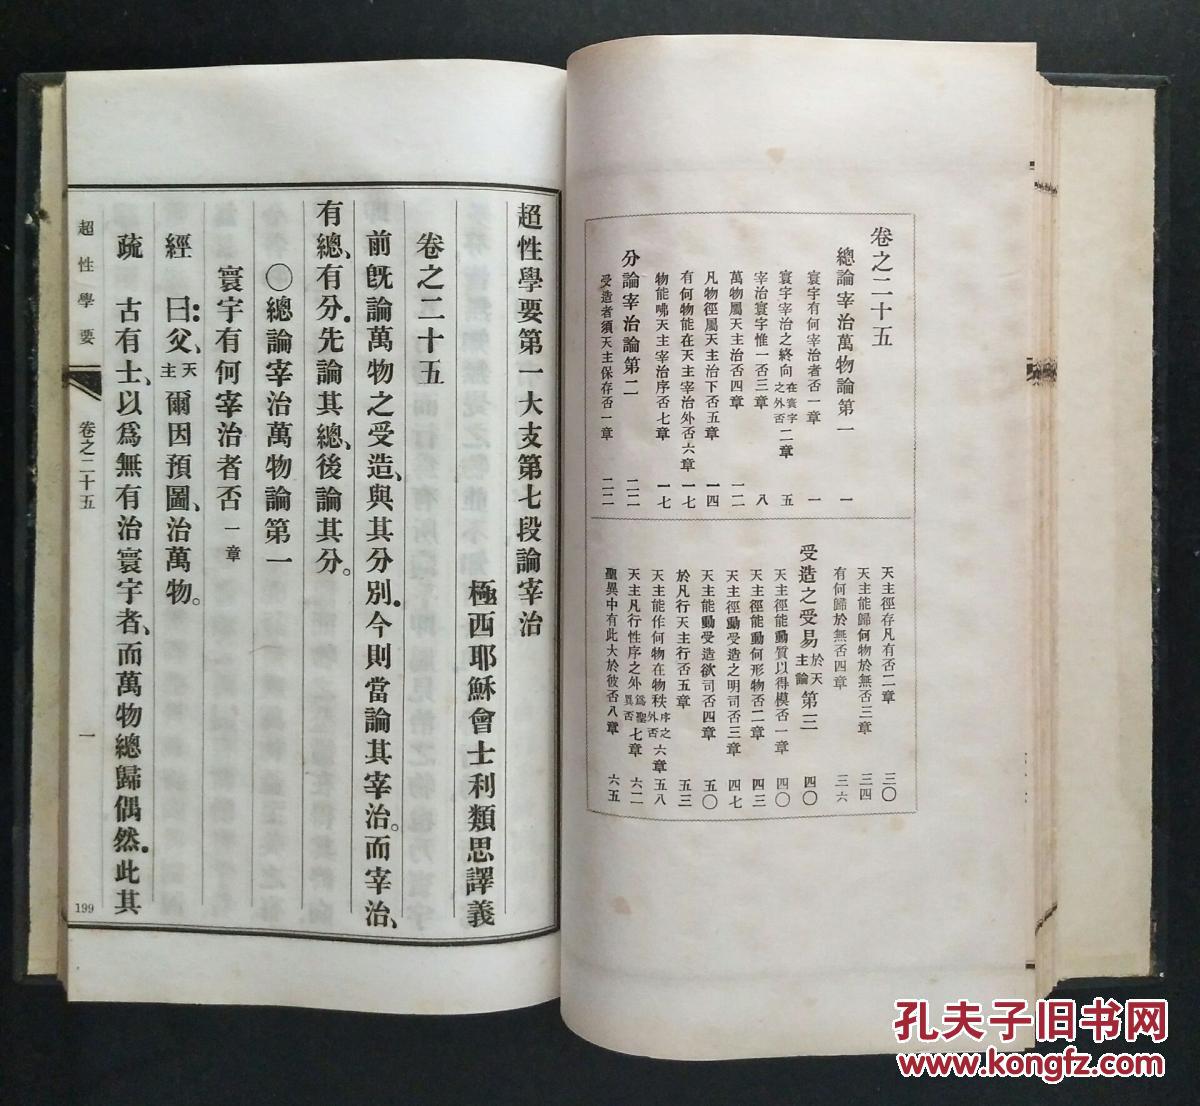 卷之二十五
總論宰治萬物論第一 一
寰宇有何宰治者否一章 一
寰宇宰治之終向在寰宇之外否二章 五
宰治寰宇惟一否三章 八
萬物屬天主治否四章 一二
凡物徑屬天主治下否五章 一四
有何物能在天主宰治外否六章 一七
物能咈天主宰治序否七章 一七
分論宰治論第二 二二
受造者須天主保存否一章 二二
天主徑存凡有否二章 三〇
天主能歸何物於無否三章 三四
有何歸於無否四章 三六
受造之受易於天主論第三 四〇
天主徑能動質以得模否一章 四〇
天主徑能動何形物否二章 四三
天主徑動受造之明司否三章 四七
天主能動受造欲司否四章 五〇
於凡行天主行否五章 五三
天主能作何物在物秩序之外否六章 五八
天主凡行性序之外爲聖異否七章 六二
聖異中有此大於彼否八章 六五
超性學要第一大支第七段論宰治
極西耶穌會士利類思譯義
卷之二十五
前旣論萬物之受造、與其分別。今則當論其宰治。而宰治、
有總、有分。先論其總、後論其分。
〇總論宰治萬物論第一
寰宇有何宰治者否一章
經 曰：父、天主爾因預圖、治萬物。
疏 古有士、以爲無有治寰宇者、而萬物總歸偶然。此其
超性學要 卷之二十五 一
199
孔夫子旧书网
www.kongfz.com